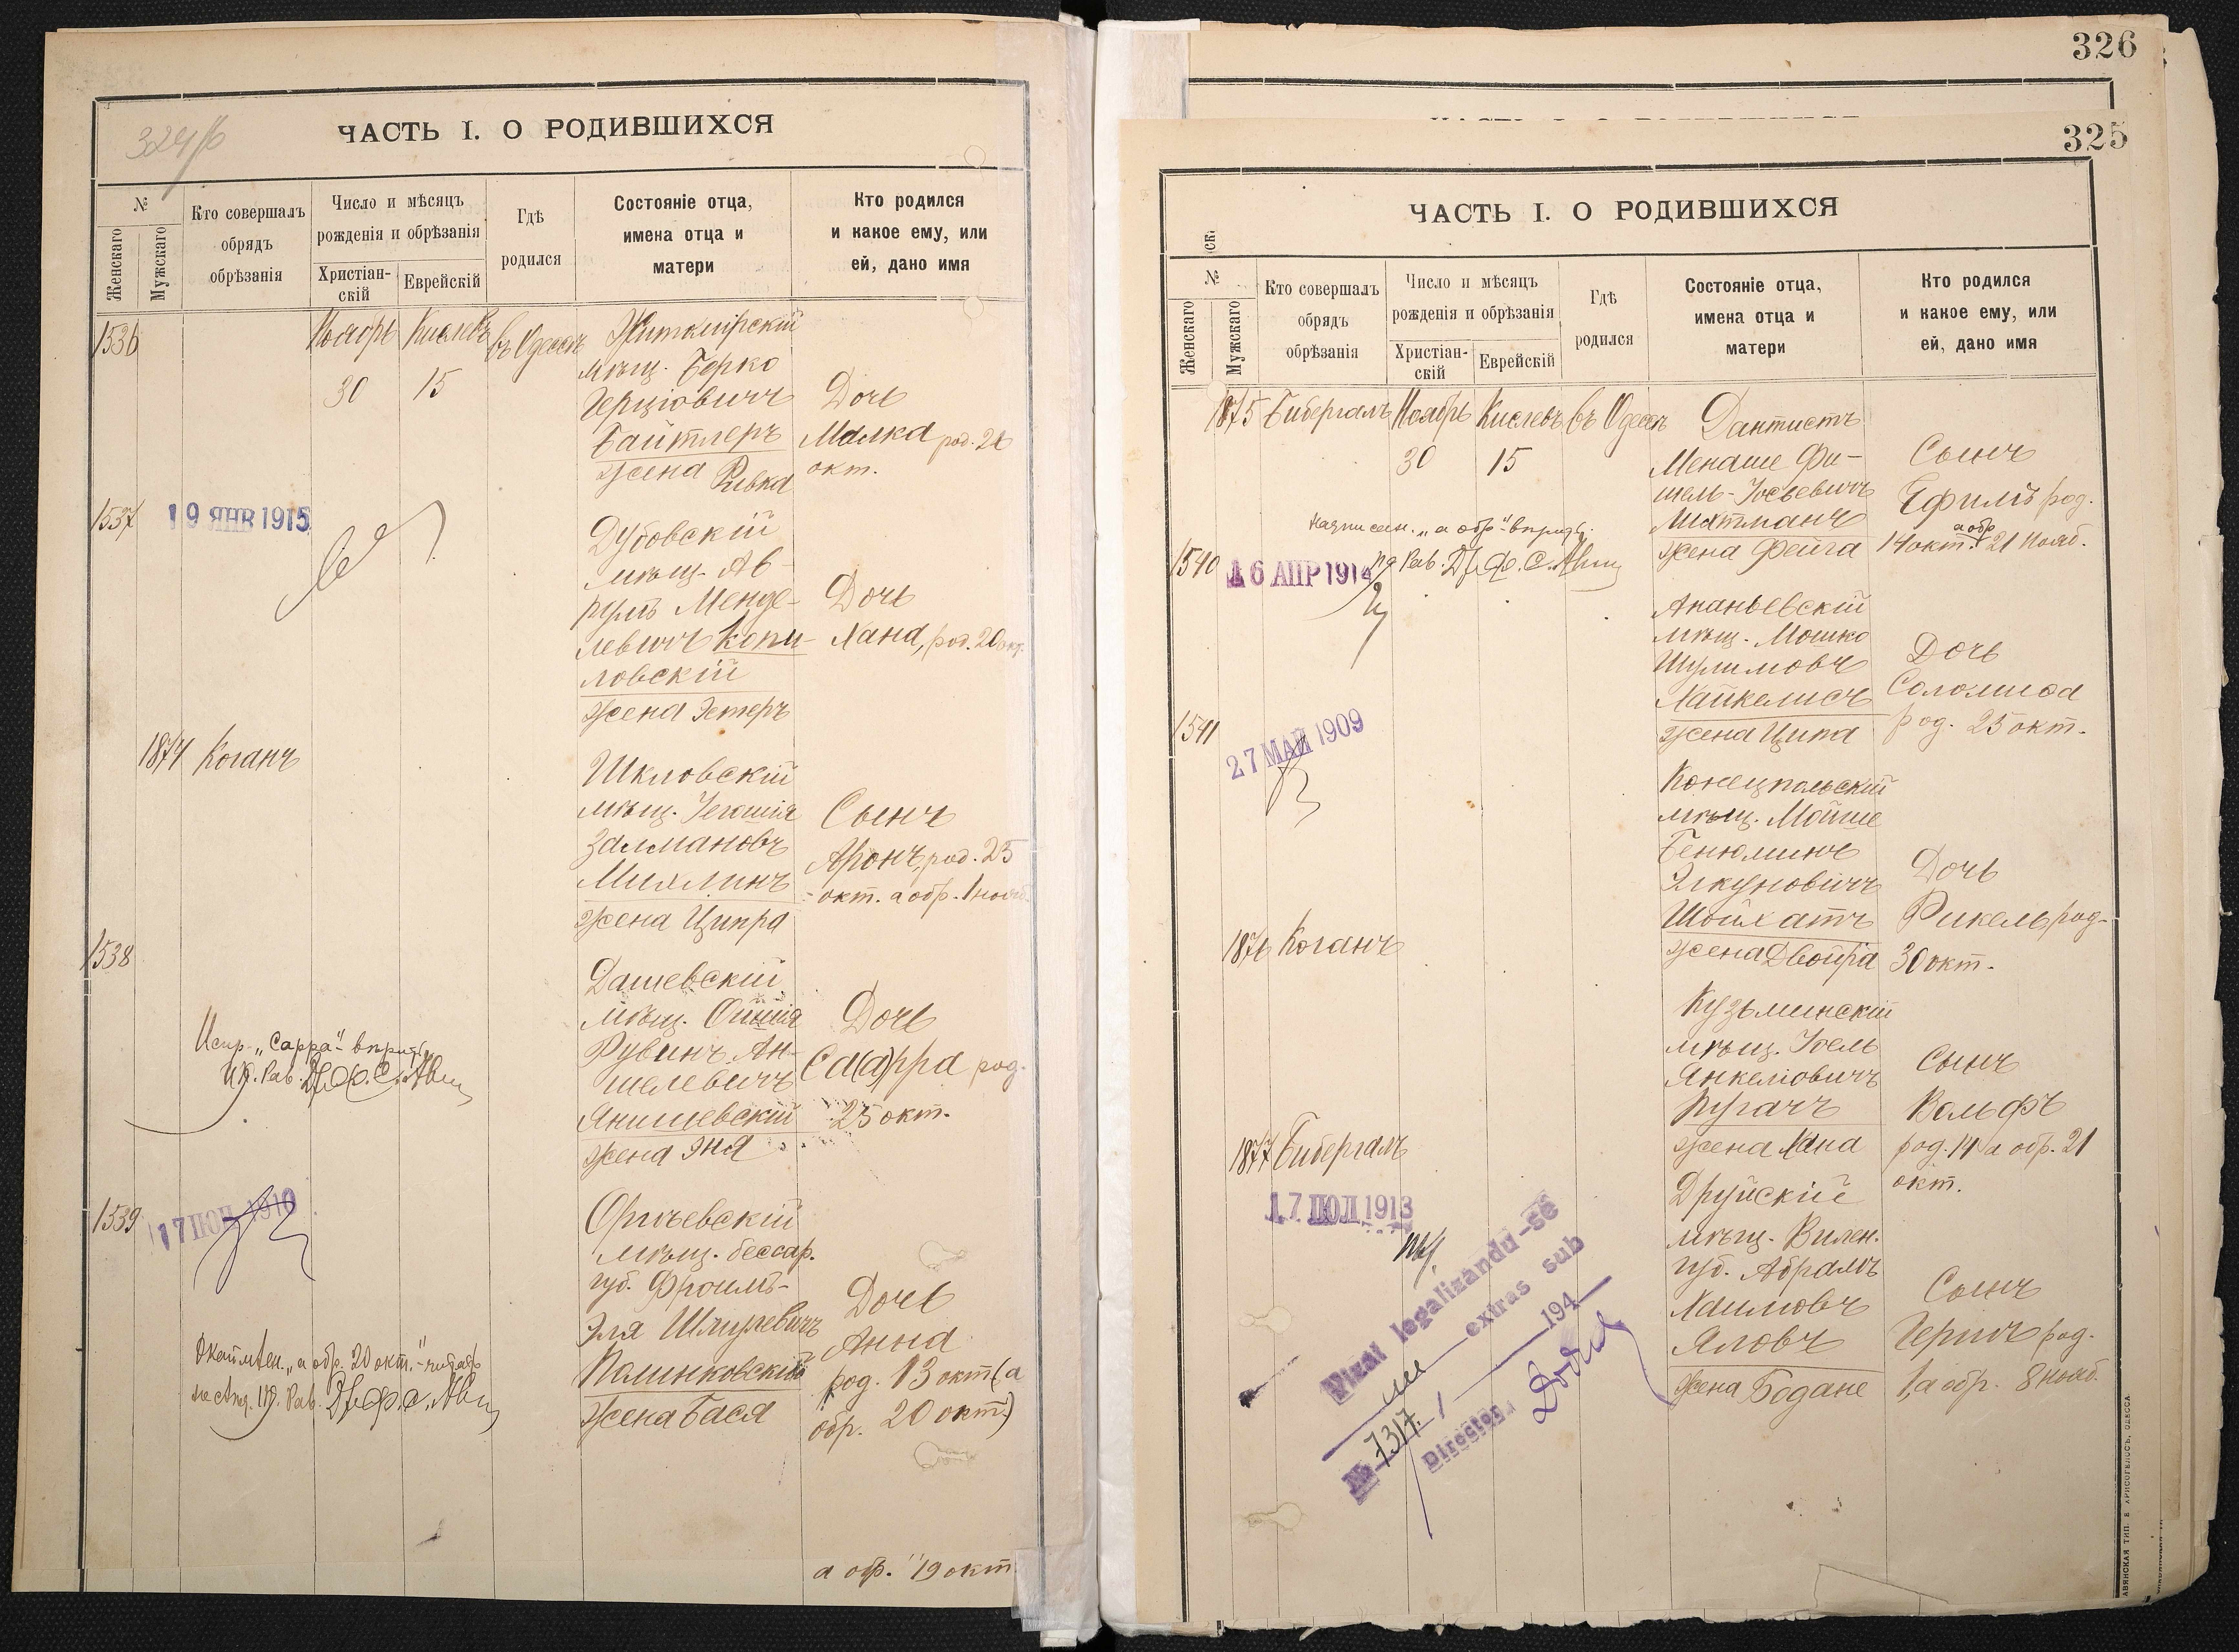 324/б
ЧАСТЬ I. О РОДИВШИХСЯ
№
Женскаго
Мужскаго
Кто совершалъ
обрядъ
обрѣзанія
Число и мѣсяцъ
рожденія и обрѣзанія
Христіан-
скій
Еврейскій
Гдѣ
родился
Состояніе отца,
имена отца и
матери
Кто родился
и какое ему, или
ей, дано имя
1536
Ноябрь Кислевъ въ Одессѣ
30 15
Житомірскій
мѣщ. Берко
Герціовичъ
Байтлеръ
жена Ривка
Дочь
Малка род. 26
окт.
1537
19 ЯНВ 1915
Дубовскій
мѣщ. Ав-
румъ Менде-
левичъ Копи-
ловскій
жена Эстеръ
Дочь
Хана, род. 20 окт.
1874 Коганъ
Шкловскій
мѣщ.
Залмановъ
Михлинъ
жена Ципра
Сынъ
Аронъ, род. 25
окт. а обр. 1 нояб.
1538
Испр. „Сарра“ вѣрить
Дашевскій
мѣщ.
Рувинъ Ан-
шелевичъ
Янишевскій
жена Эня
Дочь
Са(а)рра род.
25 окт.
1539
17 1910
Оргѣевскій
мѣщ. бессар.
губ. Фроимъ-
Эля Шмулевичъ
Полинковскій
жена Бася
Дочь
Анна
род. 13 окт. (а
обр. 20 окт.)
„а обр. 20 окт.“
а обр. 19 окт.
326
325
ЧАСТЬ I. О РОДИВШИХСЯ
№
Женскаго
Мужскаго
Кто совершалъ
обрядъ
обрѣзанія
Число и мѣсяцъ
рожденія и обрѣзанія
Христіан-
скій
Еврейскій
Гдѣ
родился
Состояніе отца,
имена отца и
матери
Кто родился
и какое ему, или
ей, дано имя
1875 Бибергалъ Ноябрь Кислевъ въ Одессѣ
30 15
Дантистъ
Менаше Фи-
шель-Іосьевичъ
Митманъ
жена Фейга
Сынъ
Ефимъ род.
14 окт. а обр. 21 нояб.
надписан. „а обр.“ вѣрить
1540
16 АПР 1914
Ананьевскій
мѣщ. Мошко
Шулимовъ
Хайкелисъ
жена Ципа
Дочь
Соломиса
род. 25 окт.
1541
27 МАЙ 1909
Конецпольскій
мѣщ. Мойше
Бенюминъ
Элкуновичъ
Шойхатъ
жена Двойра
Дочь
Рикель род.
30 окт.
1876 Коганъ
Кузьминскій
мѣщ. Іоель
Янкеліовичъ
Пугачъ
жена Хана
Сынъ
Вольфъ
род. 14 а обр. 21
окт.
1877 Бибергалъ
17 ІЮЛ 1913
Друйскій
мѣщ. Вилен.
губ. Абрамъ
Хаимовъ
Яловъ
жена Богдане
Сынъ
Гершъ род.
1, а обр. 8 нояб.
Vizat legalizându-se
extras sub
№ 7317. / 194
Director